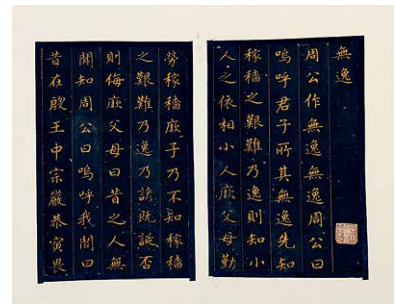 無逸
周公作無逸無逸周公曰
嗚呼君子所其無逸先知
稼穡之艱難乃逸則知小
人之依相小人厥父母勤
勞稼穡厥子乃不知稼穡
之艱難乃逸乃諺既誕否
則侮厥父母曰昔之人無
聞知周公曰嗚呼我聞曰
昔在殷王中宗嚴恭寅畏